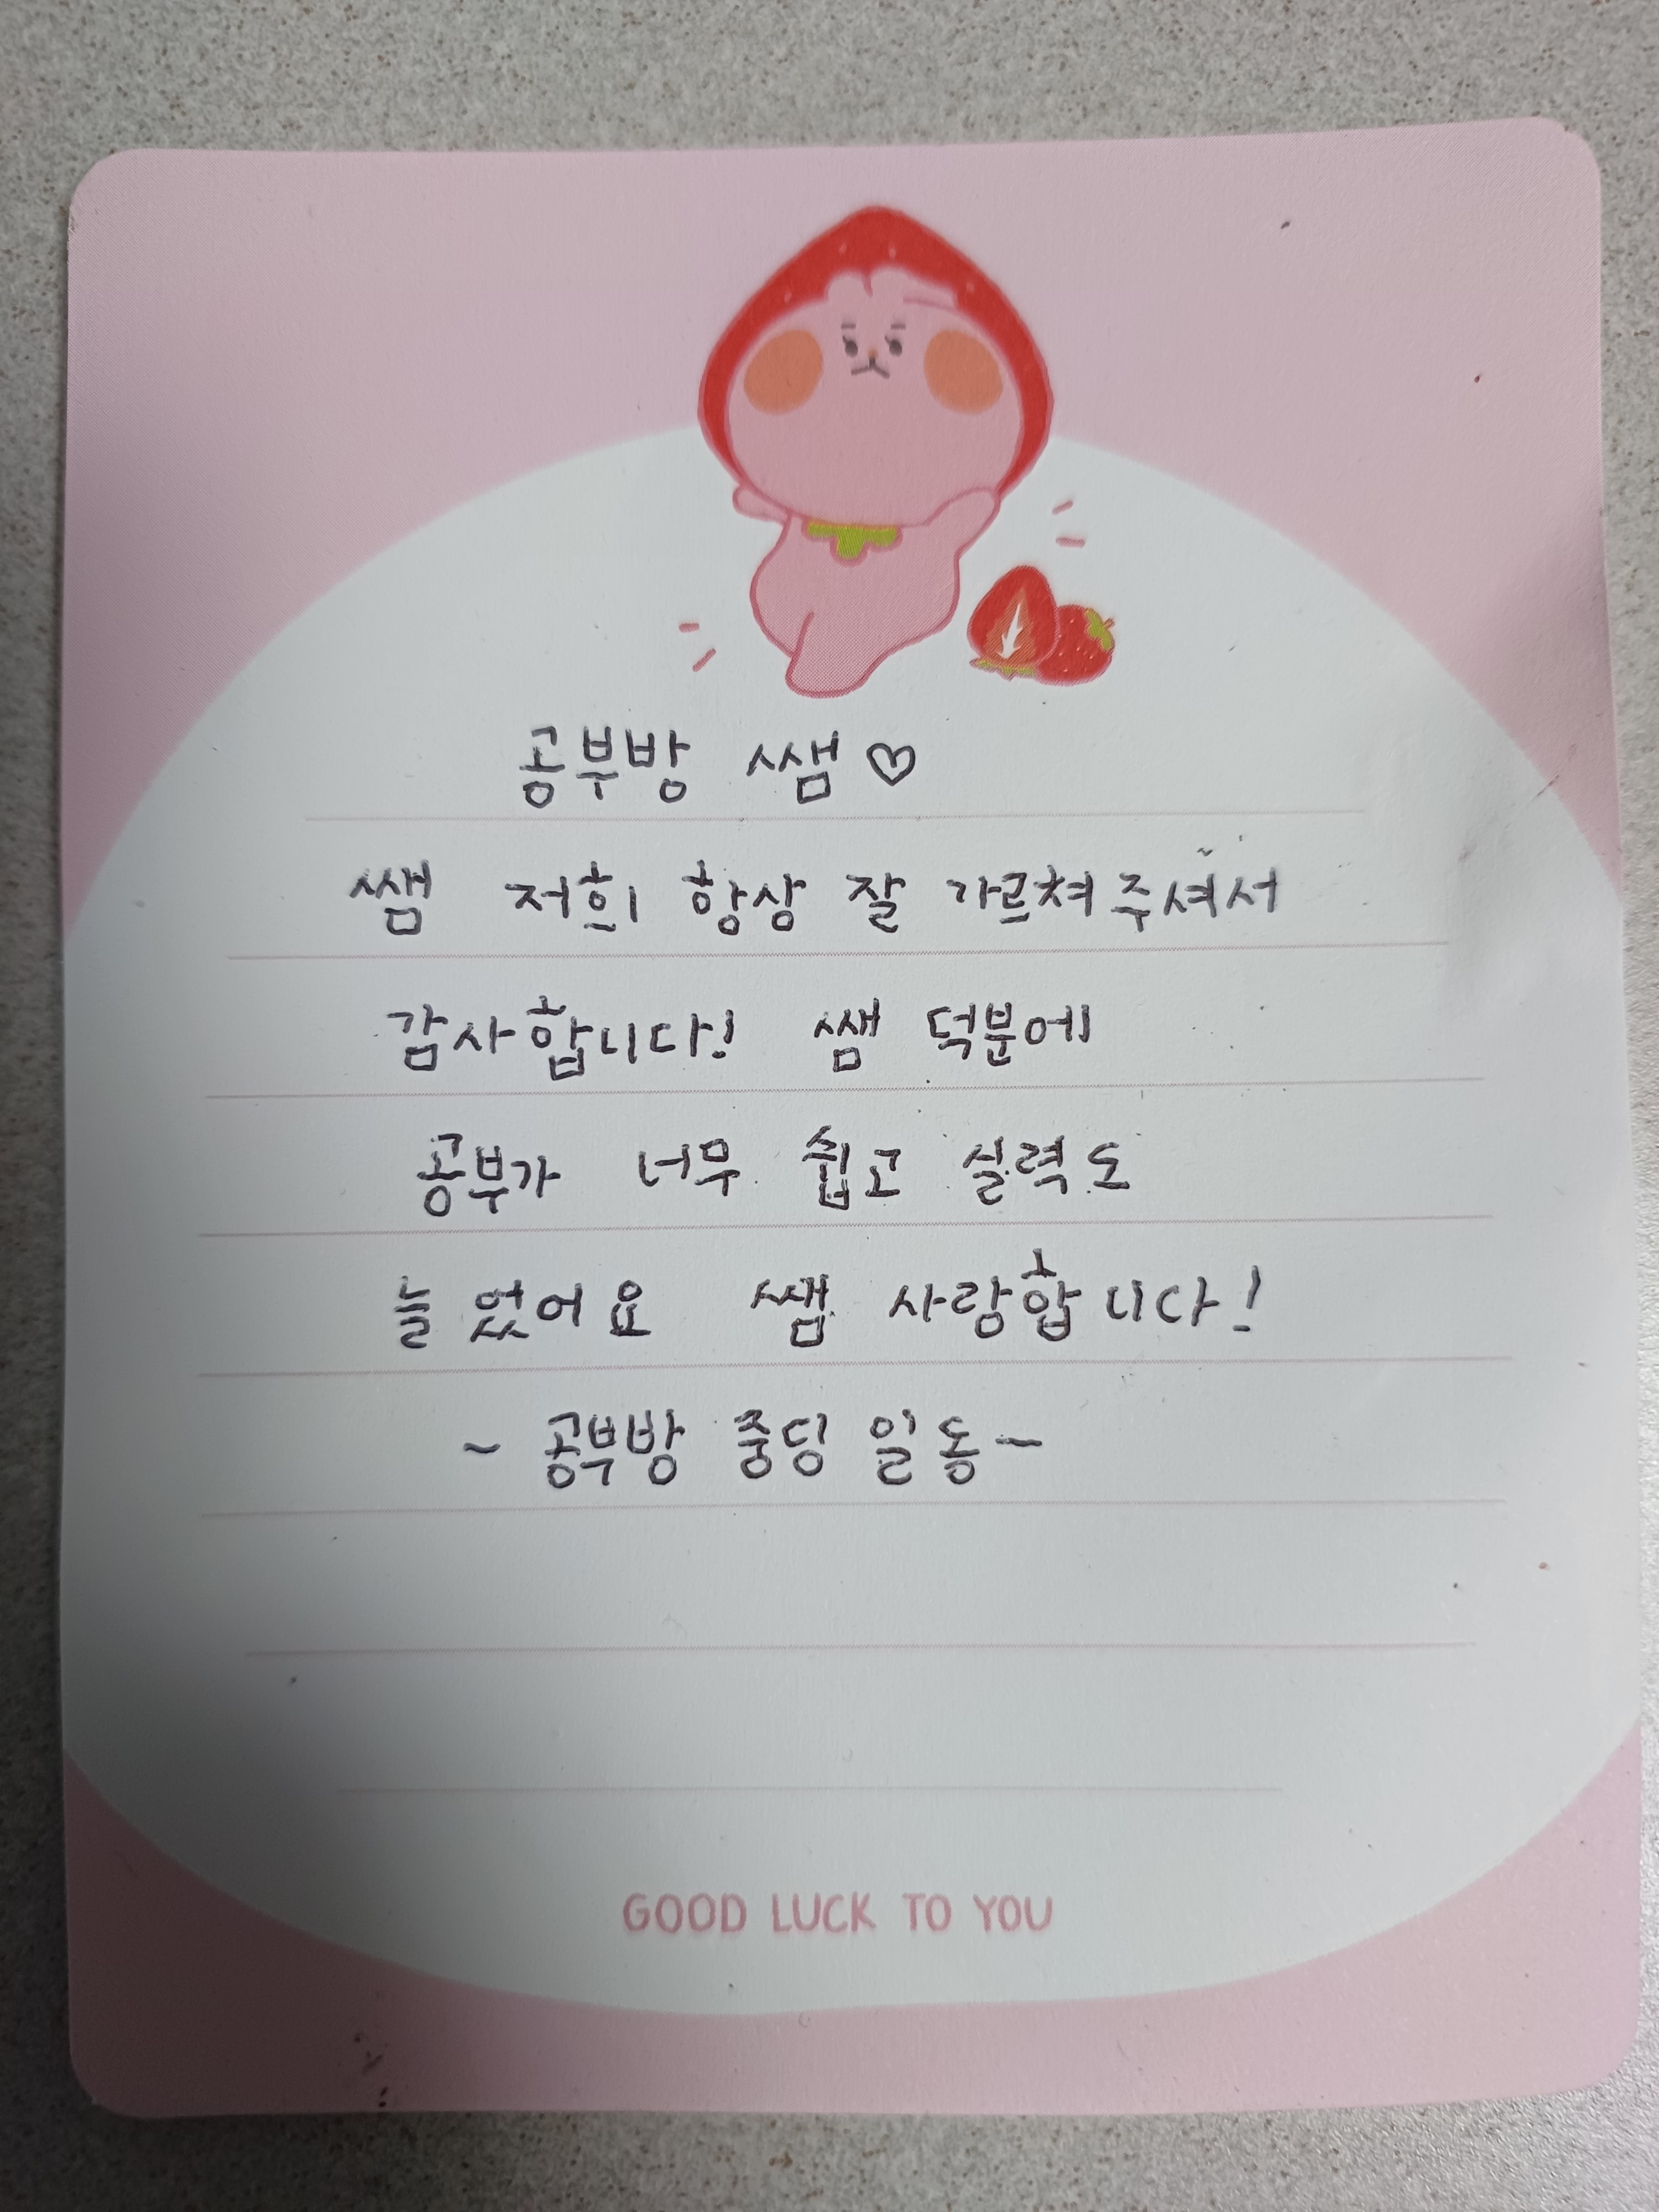 공부방 쌤♡
쌤 저희 항상 잘 가르쳐주셔서
감사합니다! 쌤 덕분에
공부가 너무 쉽고 실력도
늘었어요 쌤 사랑합니다!
~ 공부방 중딩 일동 ~
GOOD LUCK TO YOU